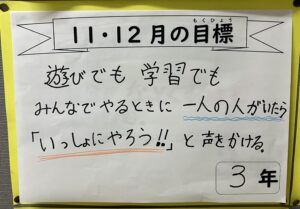 11・12月の目標
もくひょう
遊びでも 学習でも
みんなでやるときに 一人の人がいたら
「いっしょにやろう!!」と声をかける。
3年